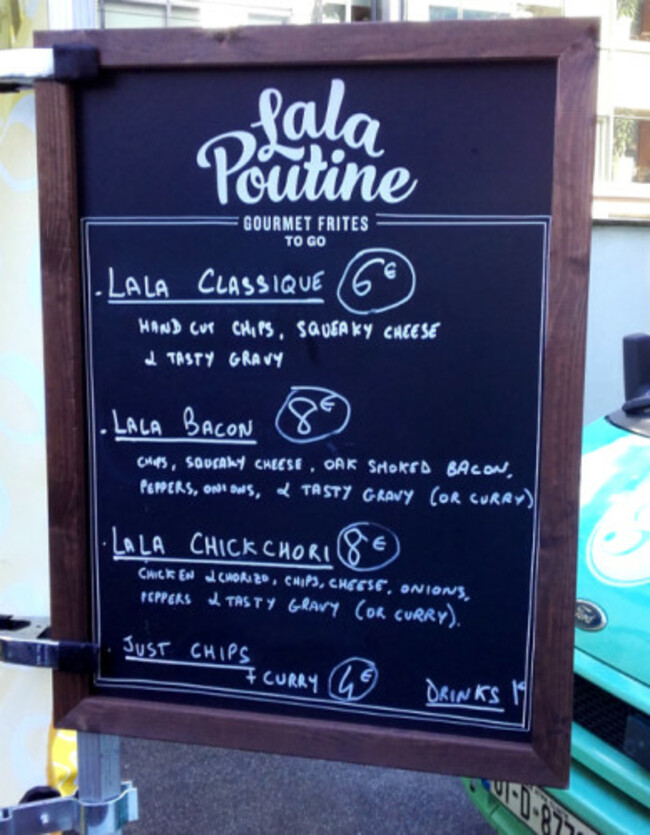 Lala
Poutine
GOURMET FRITES
TO GO
- LALA CLASSIQUE 6€
HAND CUT CHIPS, SQUEAKY CHEESE
& TASTY GRAVY
. LALA BACON 8€
CHIPS, SQUEAKY CHEESE, OAK SMOKED BACON,
PEPPERS, ONIONS, & TASTY GRAVY (OR CURRY)
. LALA CHICKCHORI 8€
CHICKEN & CHORIZO, CHIPS, CHEESE, ONIONS,
PEPPERS & TASTY GRAVY (OR CURRY).
. JUST CHIPS
+ CURRY 4€
DRINKS 1€
Ford